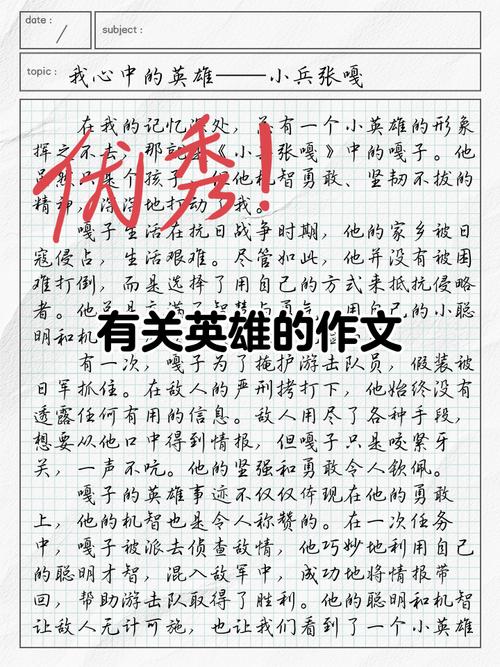 date :
subject :
topic : 我心中的英雄——小兵张嘎
在我的记忆深处，总有一个小英雄的形象
挥之不去，那就是《小兵张嘎》中的嘎子。他
虽然只是个孩子，但他机智勇敢、坚韧不拔的
精神，深深地打动了我。
优秀！
嘎子生活在抗日战争时期，他的家乡被日
寇侵占，生活艰难。尽管如此，他并没有被困
难打倒，而是选择了用自己的方式来抵抗侵略
者。他总是充满了智慧与勇气，用自己的小聪
明和机
有关英雄的作文
有一次，嘎子为了掩护游击队员，假装被
日军抓住。在敌人的严刑拷打下，他始终没有
透露任何有用的信息。敌人用尽了各种手段，
想要从他口中得到情报，但嘎子只是咬紧牙
关，一声不吭。他的坚强和勇敢令人钦佩。
嘎子的英雄事迹不仅仅体现在他的勇敢
上，他的机智也是令人称赞的。在一次任务
中，嘎子被派去侦查敌情，他巧妙地利用自己
的聪明才智，混入敌军中，成功地将情报带
回，帮助游击队取得了胜利。他的聪明和机智
让敌人无计可施，也让我们看到了一个小英雄